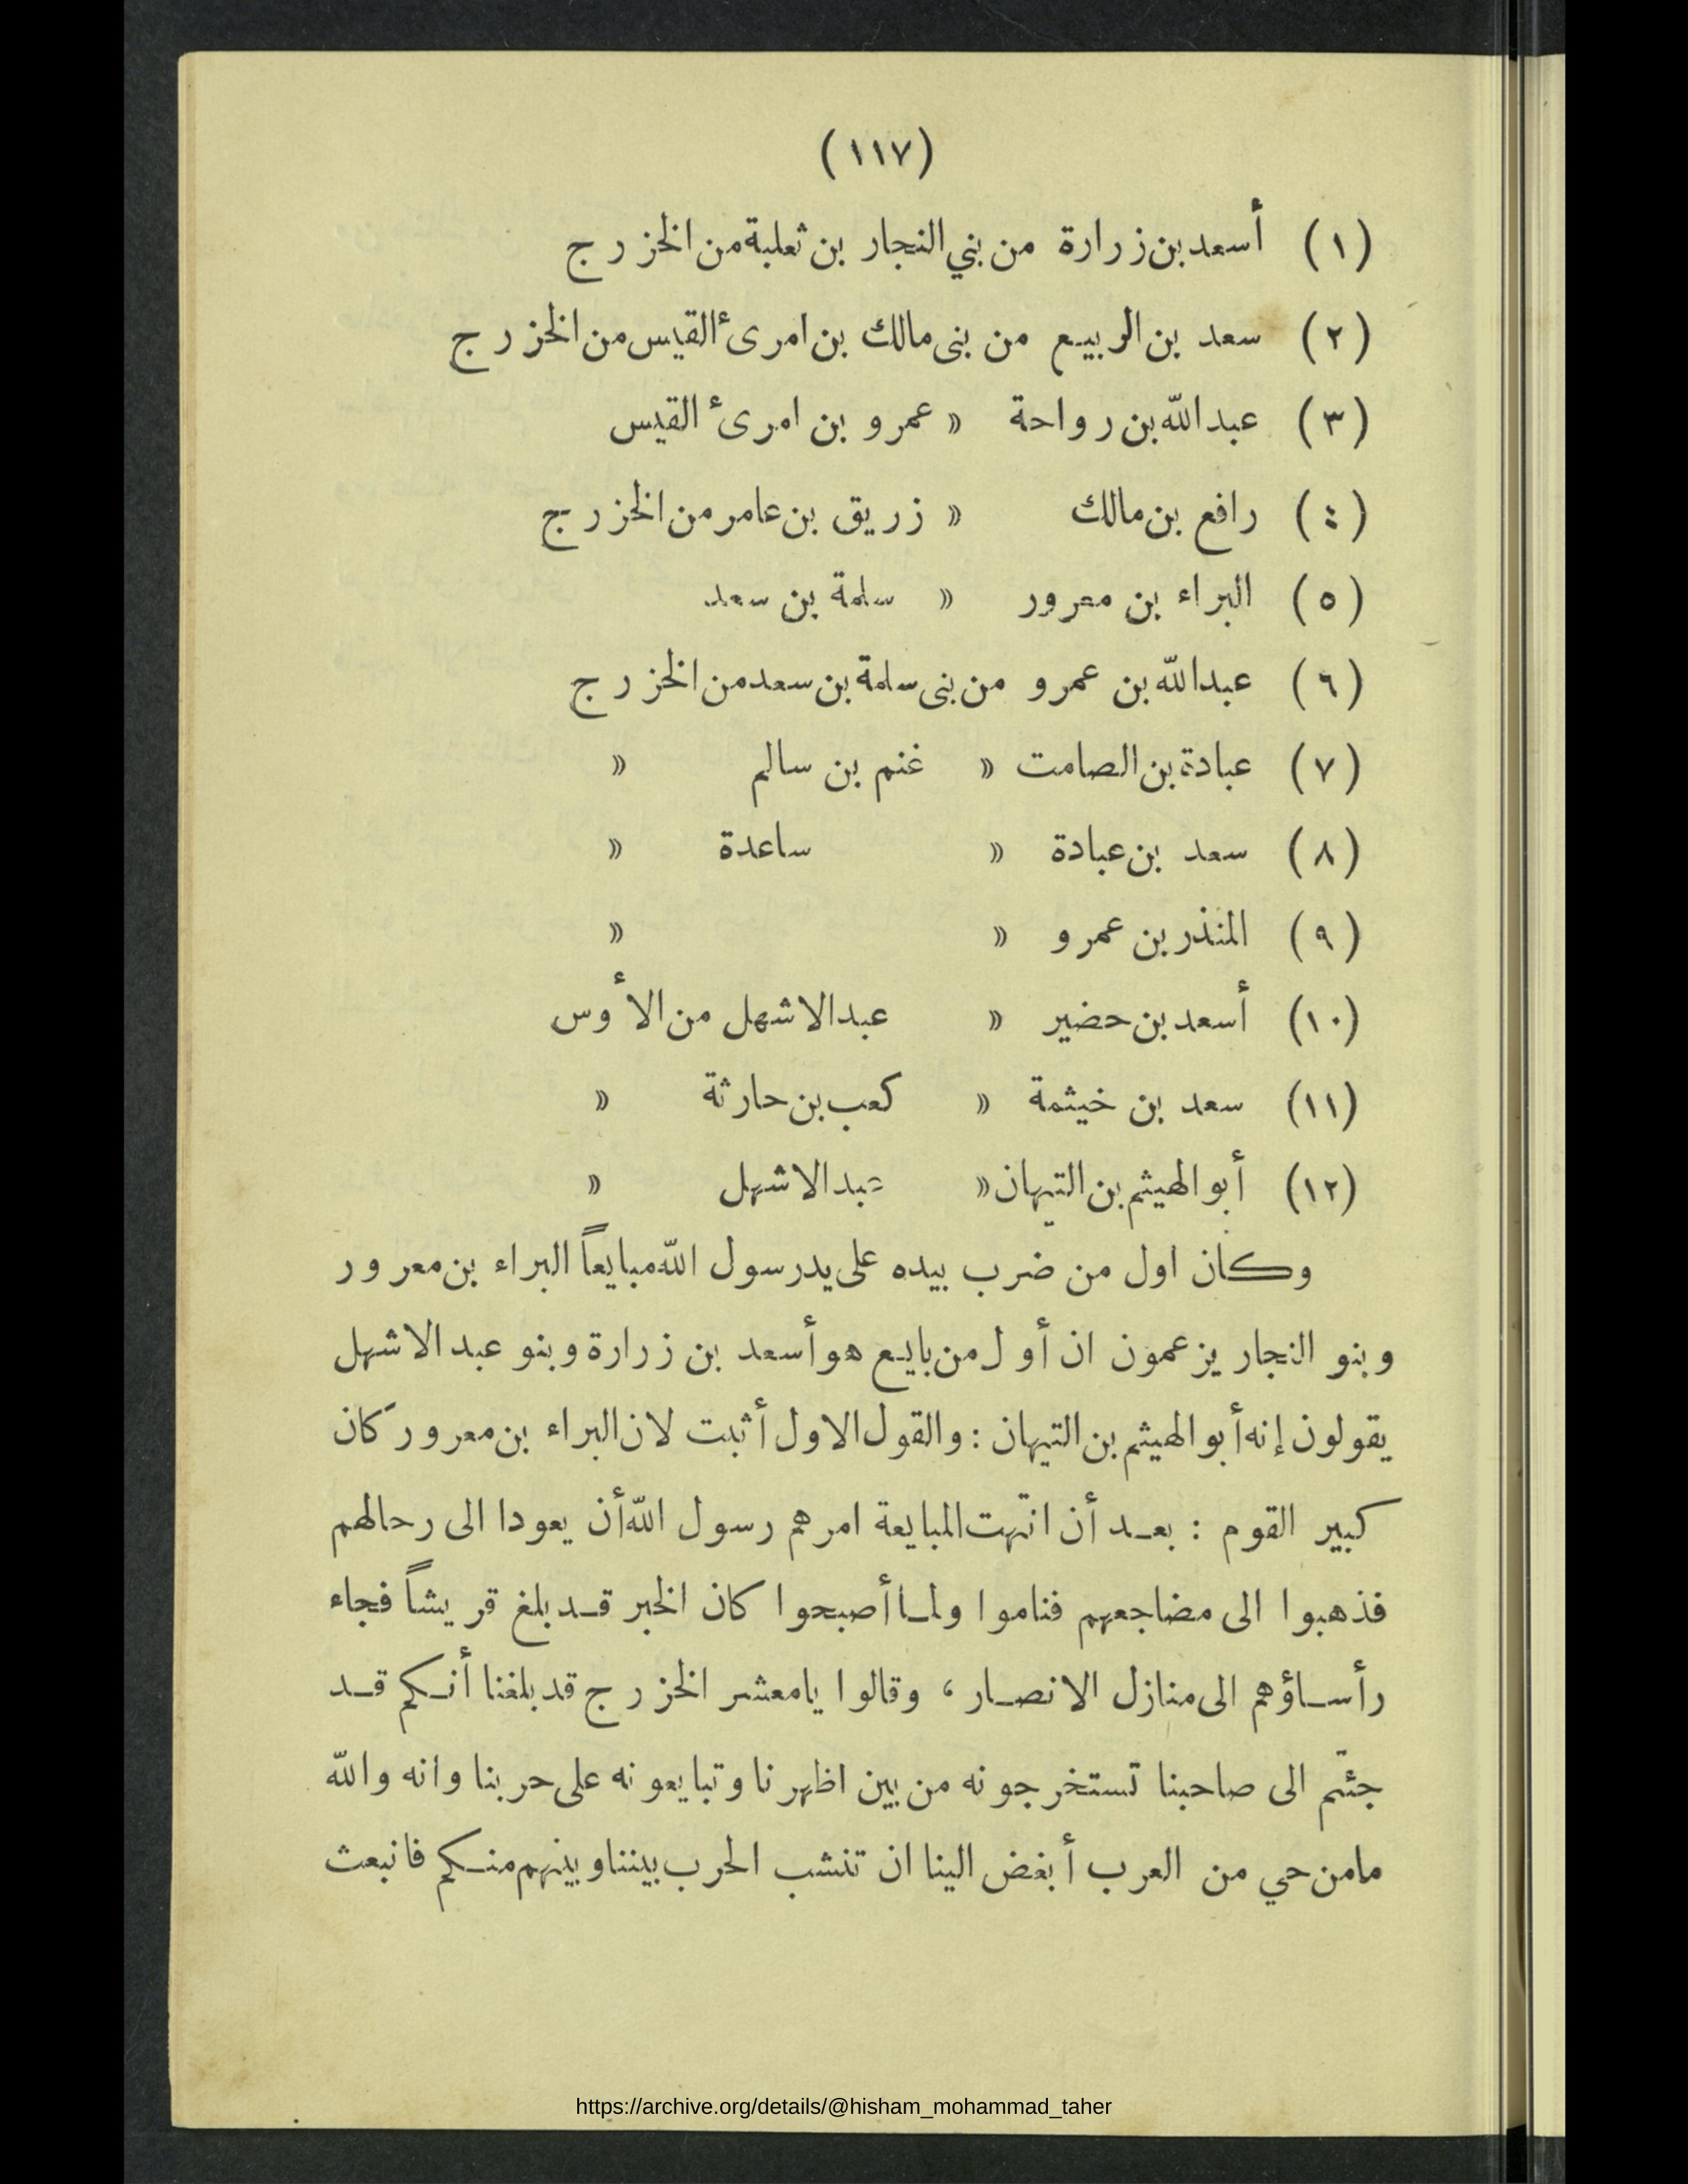 (١١٧)
(١) أسعد بن زرارة من بني النجار بن ثعلبة من الخزرج
(٢) سعد بن الربيع من بنى مالك بن امرىء القيس من الخزرج
(٣) عبد الله بن رواحة » عمرو بن امرىء القيس
(٤) رافع بن مالك » زريق بن عامر من الخزرج
(٥) البراء بن معرور » سلمة بن سعد
(٦) عبد الله بن عمرو من بنى سلمة بن سعد من الخزرج
(٧) عبادة بن الصامت » غنم بن سالم »
(٨) سعد بن عبادة » ساعدة »
(٩) المنذر بن عمرو » »
(١٠) أسعد بن حضير » عبد الاشهل من الأوس
(١١) سعد بن خيثمة » كعب بن حارثة »
(١٢) أبو الهيثم بن التيهان » عبد الاشهل »
وكان اول من ضرب بيده على يد رسول الله مبايعاً البراء بن معرور
وبنو النجار يزعمون ان أول من بايع هو أسعد بن زرارة وبنو عبد الاشهل
يقولون إنه أبو الهيثم بن التيهان : والقول الاول أثبت لان البراء بن معرور كان
كبير القوم : بعد أن انتهت المبايعة امرهم رسول الله أن يعودا الى رحالهم
فذهبوا الى مضاجعهم فناموا ولما أصبحوا كان الخبر قد بلغ قريشاً فجاء
رأساؤهم الى منازل الانصار ، وقالوا يامعشر الخزرج قد بلغنا أنكم قد
جئتم الى صاحبنا تستخرجونه من بين اظهرنا وتبايعونه على حربنا وانه والله
مامن حي من العرب أبغض الينا ان تنشب الحرب بيننا وبينهم منكم فانبعث
https://archive.org/details/@hisham_mohammad_taher